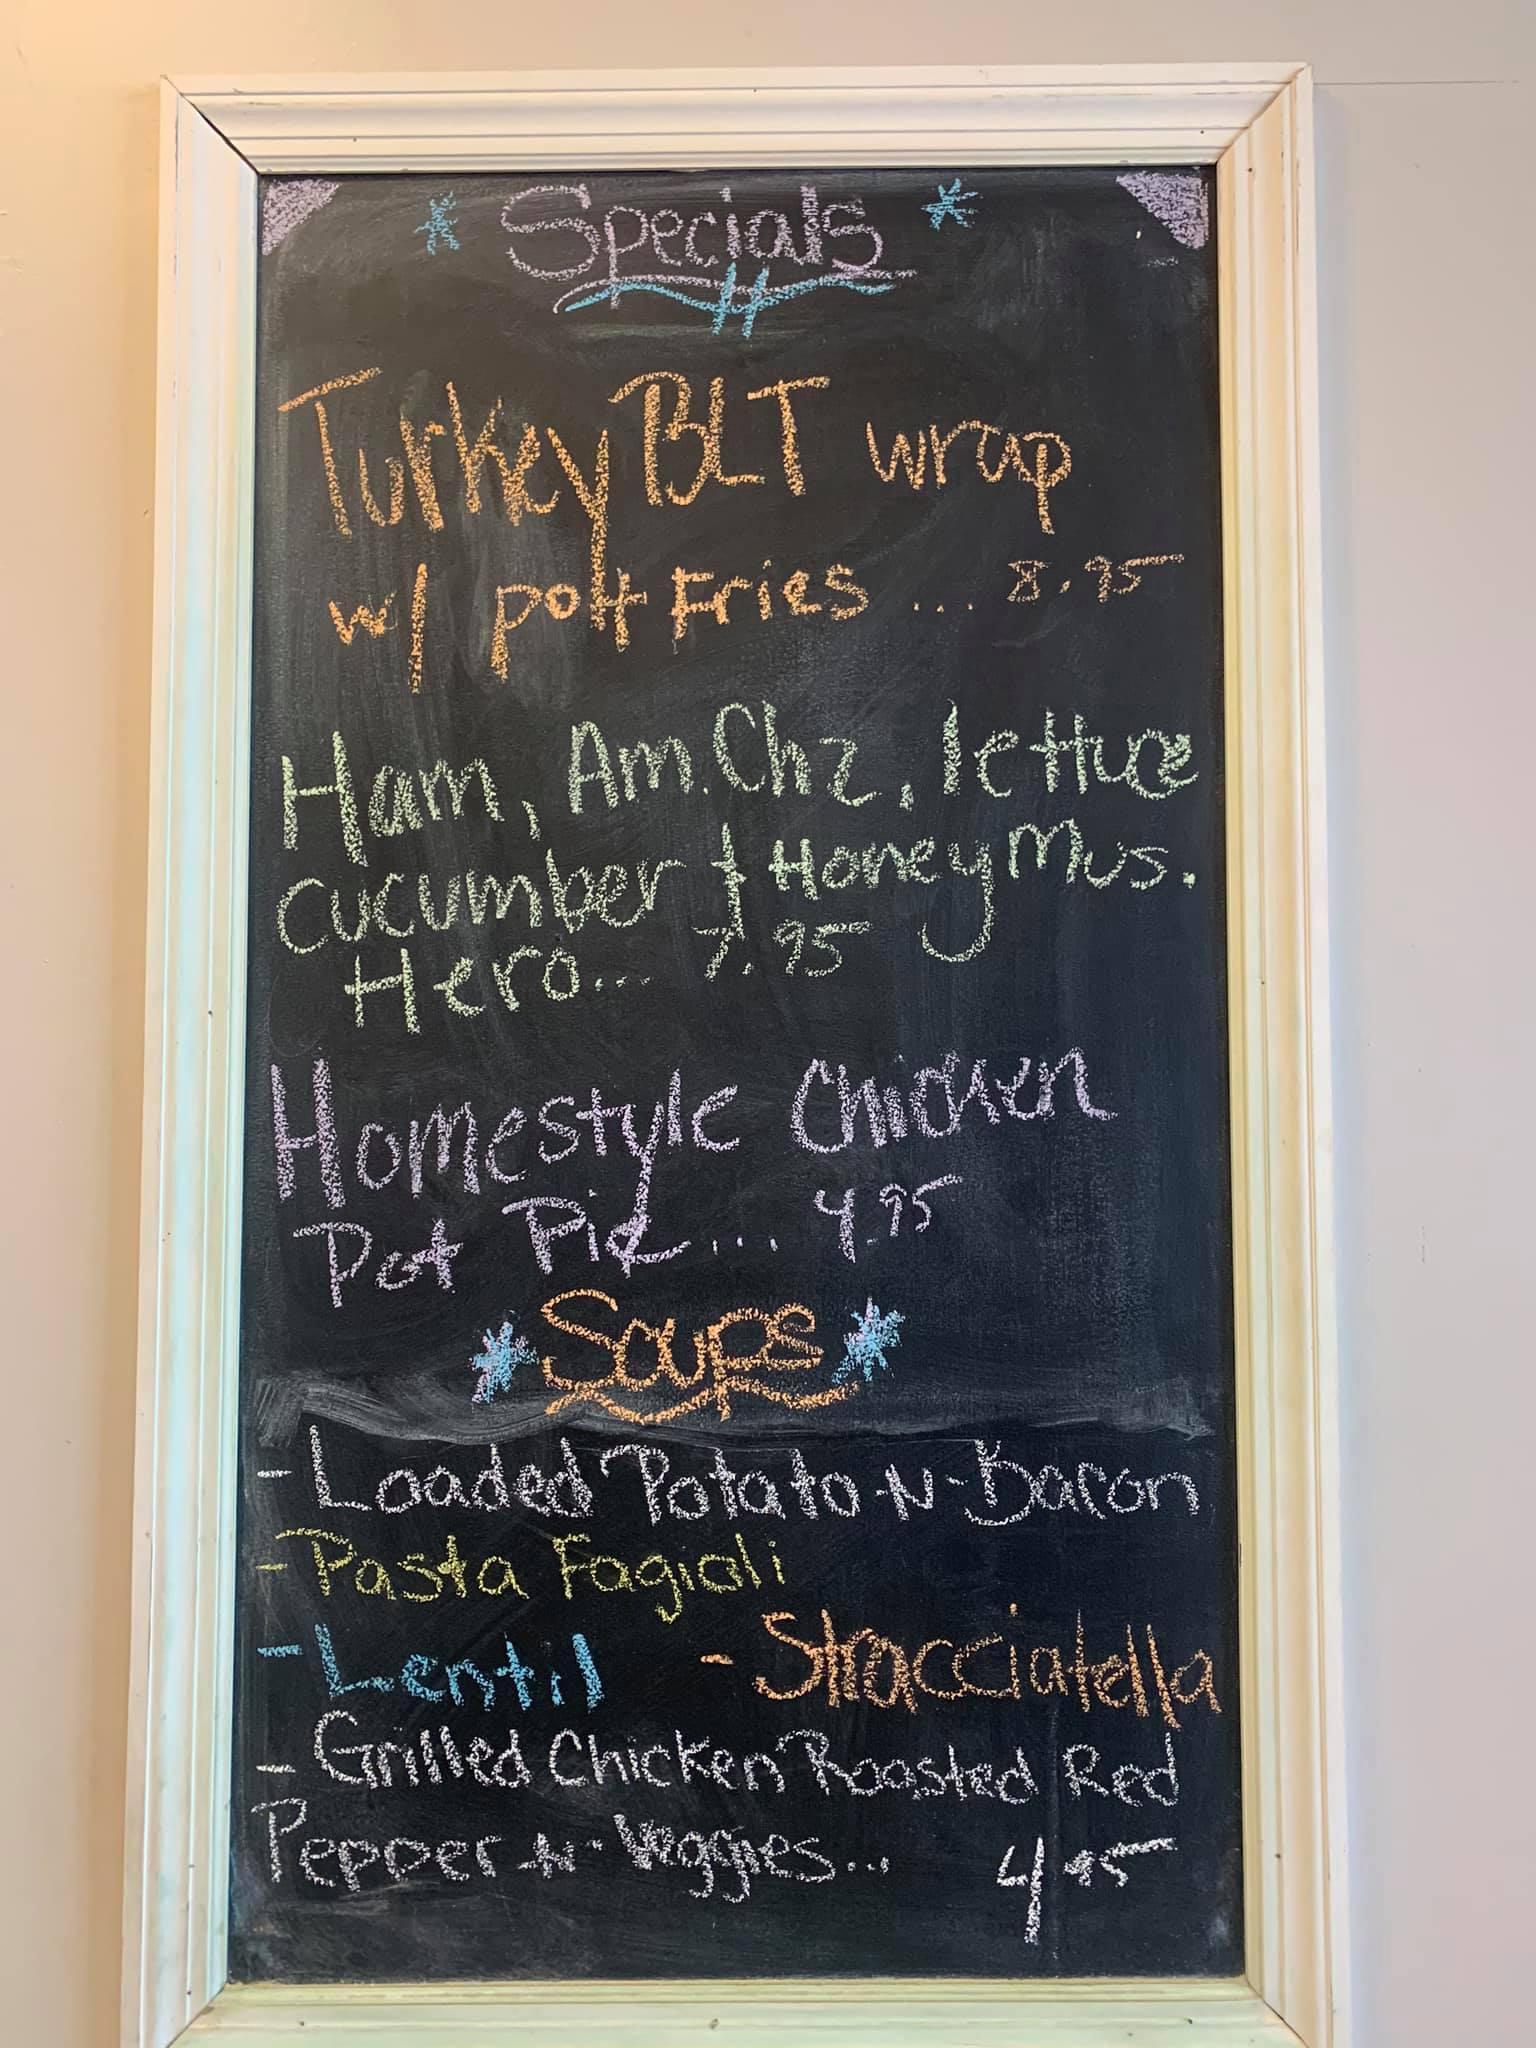 * Specials *
Turkey BLT wrap
w/ pott Fries ... 8.95
Ham, Am. Chz, lettuce
cucumber + Honey Mus.
Hero... 7.95
Homestyle Chicken
Pot Pie... 4.95
* Soups *
- Loaded Potato-N-Bacon
- Pasta Fagioli
- Lentil - Stracciatella
- Grilled Chicken Roasted Red
Pepper-N-Veggies... 4.95